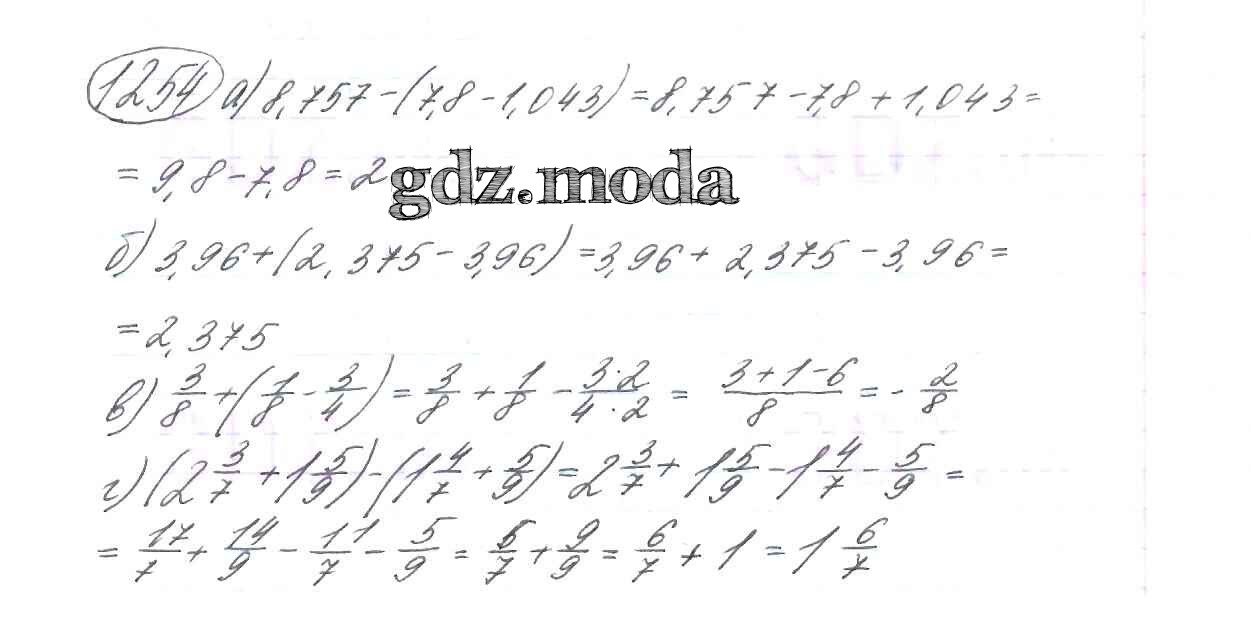 1254 а) 8,757 - (7,8 - 1,043) = 8,757 - 7,8 + 1,043 =
= 9,8 - 7,8 = 2 gdz.moda
б) 3,96 + (2,375 - 3,96) = 3,96 + 2,375 - 3,96 =
= 2,375
в) 3/8 + (1/8 - 3/4) = 3/8 + 1/8 - 3·2/4·2 = 3+1-6/8 = - 2/8
г) (2 3/7 + 1 5/9) - (1 4/7 + 5/9) = 2 3/7 + 1 5/9 - 1 4/7 - 5/9 =
= 17/7 + 14/9 - 11/7 - 5/9 = 6/7 + 9/9 = 6/7 + 1 = 1 6/7